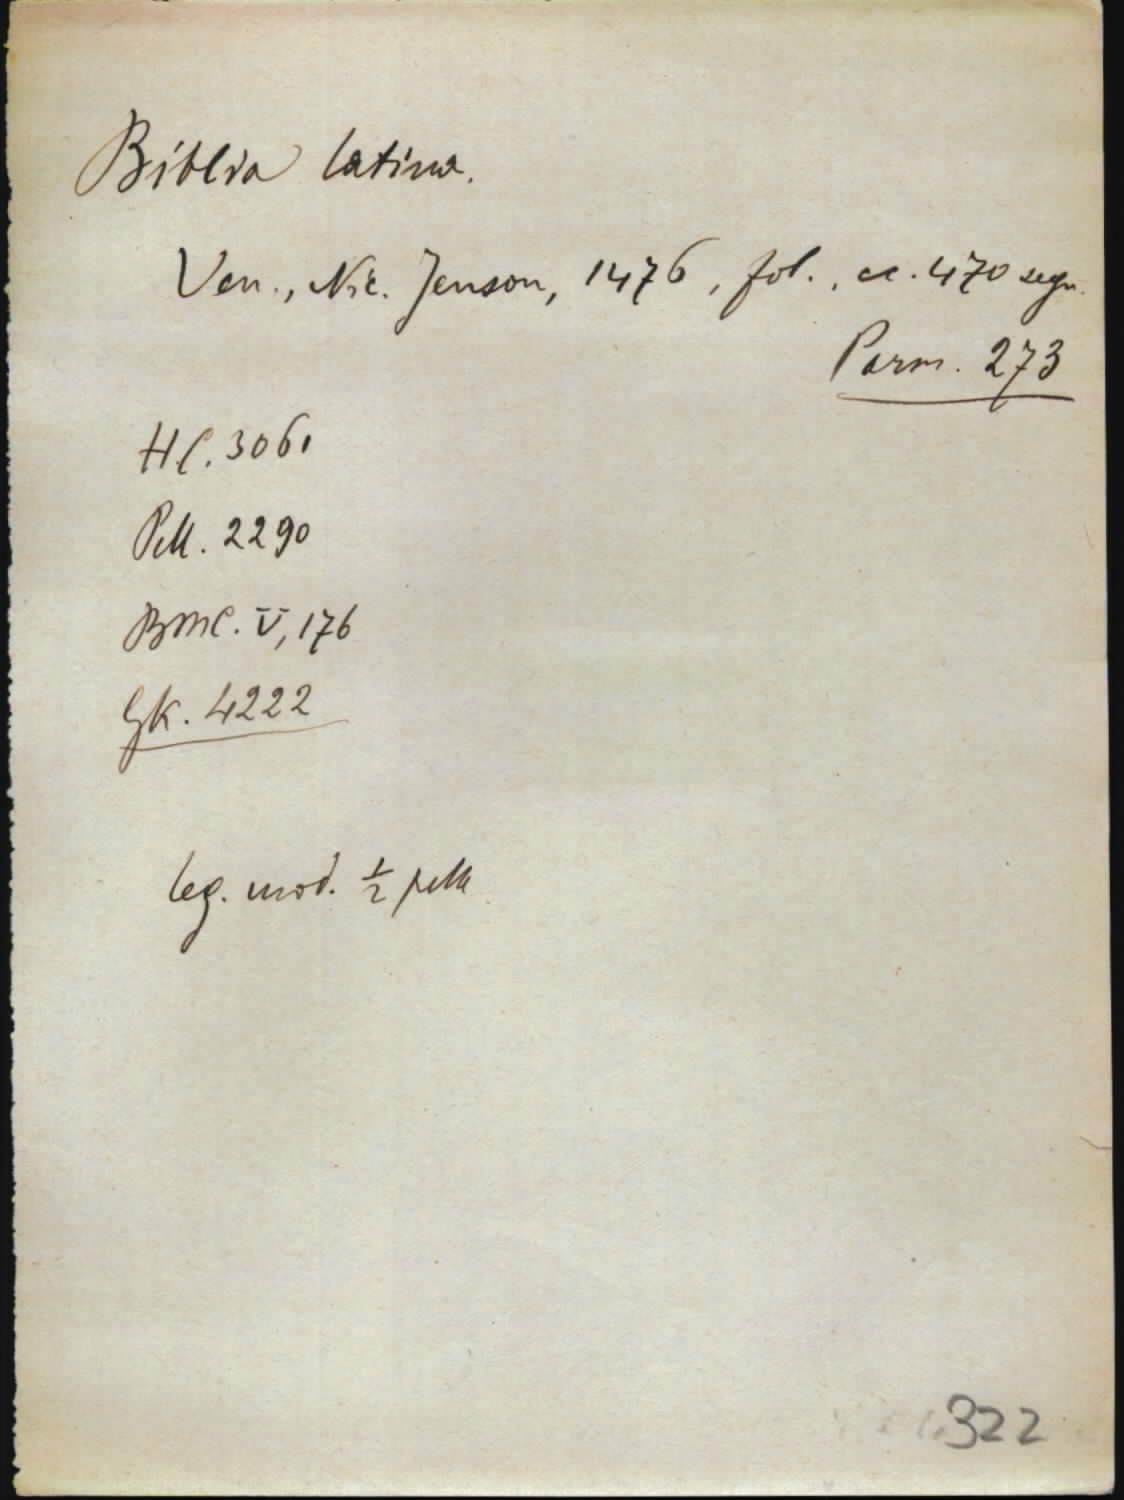 Biblia latina.
Ven., Nic. Jenson, 1476, fol., cc. 470 segn.
Parm. 273
HC. 3061
Pell. 2290
BMC. V, 176
GK. 4222
leg. mod. ½ pelle
322